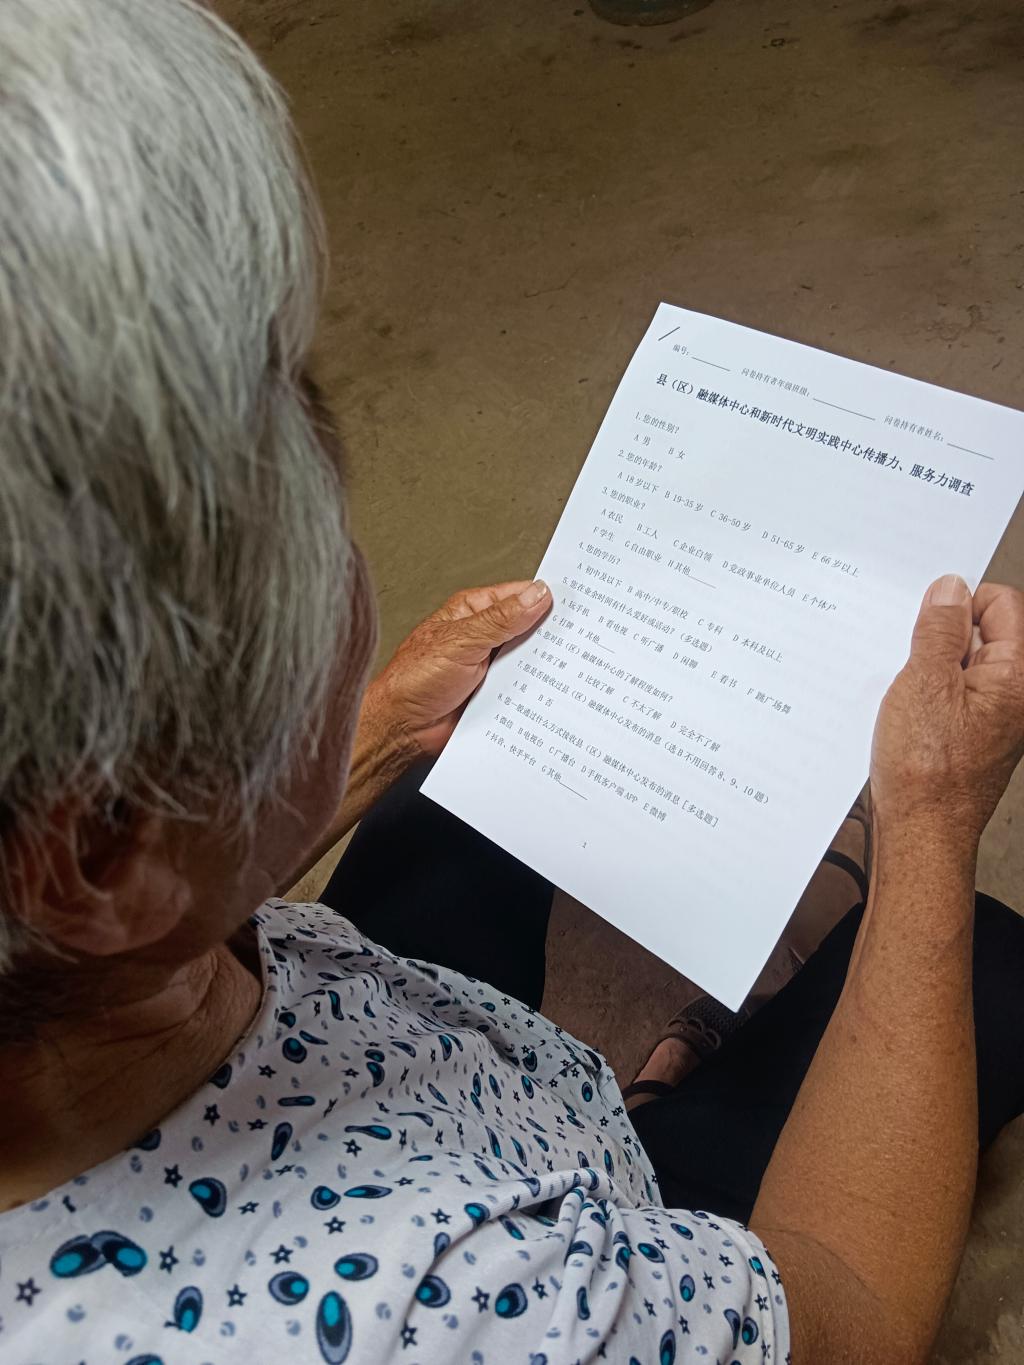 编号：______ 问卷持有者年级班级：__________ 问卷持有者姓名：________
县（区）融媒体中心和新时代文明实践中心传播力、服务力调查
1. 您的性别？
A 男 B 女
2. 您的年龄？
A 18 岁以下 B 19-35 岁 C 36-50 岁 D 51-65 岁 E 66 岁以上
3. 您的职业？
A 农民 B 工人 C 企业白领 D 党政事业单位人员 E 个体户
F 学生 G 自由职业 H 其他_____
4. 您的学历？
A 初中及以下 B 高中/中专/职校 C 专科 D 本科及以上
5. 您在业余时间有什么爱好或活动？（多选题）
A 玩手机 B 看电视 C 听广播 D 闲聊 E 看书 F 跳广场舞
G 打牌 H 其他____
6. 您对县（区）融媒体中心的了解程度如何？
A 非常了解 B 比较了解 C 不太了解 D 完全不了解
7. 您是否接收过县（区）融媒体中心发布的消息（选 B 不用回答 8、9、10 题）
A 是 B 否
8. 您一般通过什么方式接收县（区）融媒体中心发布的消息［多选题］
A 微信 B 电视台 C 广播台 D 手机客户端 APP E 微博
F 抖音、快手平台 G 其他________
1